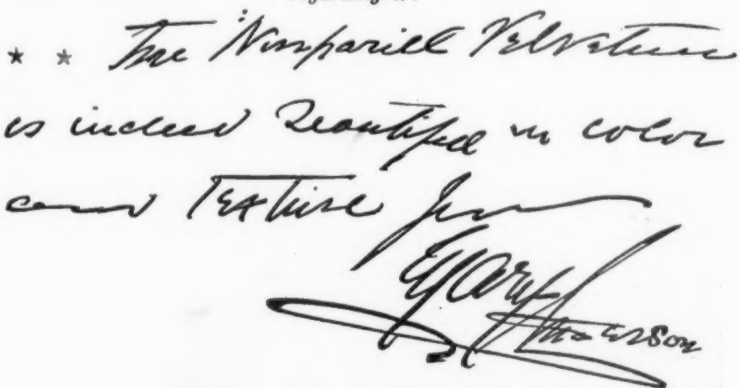 * * The "Nonpariell Velveteen
is indeed Beautiful in color
and Texture
Mary Anderson